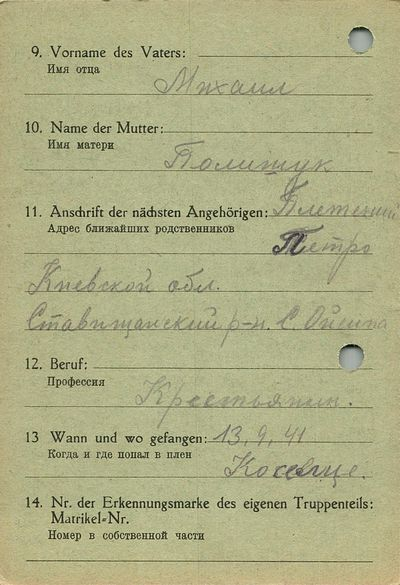 9. Vorname des Vaters:
Имя отца
Михаил
10. Name der Mutter:
Имя матери
Полищук
11. Anschrift der nächsten Angehörigen:
Адрес ближайших родственников Петро
Киевской обл.
Ставищанский р-н. С.
12. Beruf:
Профессия
Крестьянин.
13 Wann und wo gefangen: 13.9.41
Когда и где попал в плен
14. Nr. der Erkennungsmarke des eigenen Truppenteils:
Matrikel-Nr.
Номер в собственной части